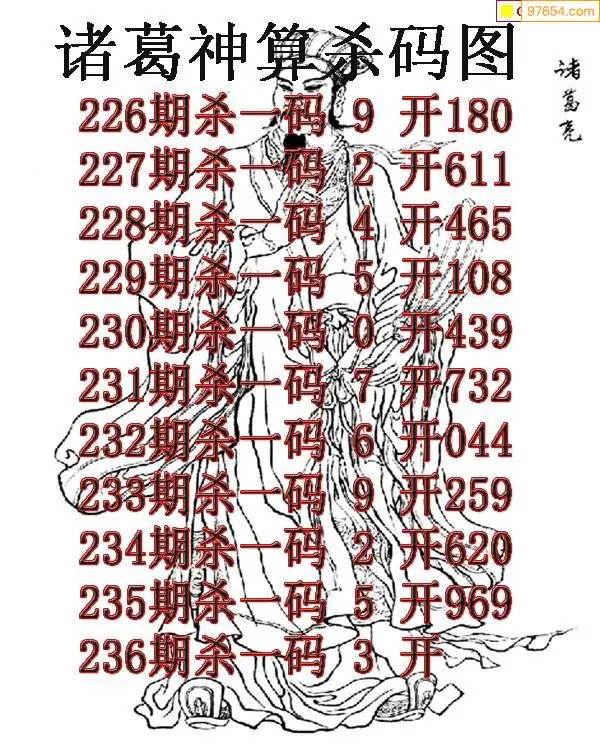 97654.com
诸葛神算杀码图
诸葛亮
226期杀一码 9 开180
227期杀一码 2 开611
228期杀一码 4 开465
229期杀一码 5 开108
230期杀一码 0 开439
231期杀一码 7 开732
232期杀一码 6 开044
233期杀一码 9 开259
234期杀一码 2 开620
235期杀一码 5 开969
236期杀一码 3 开